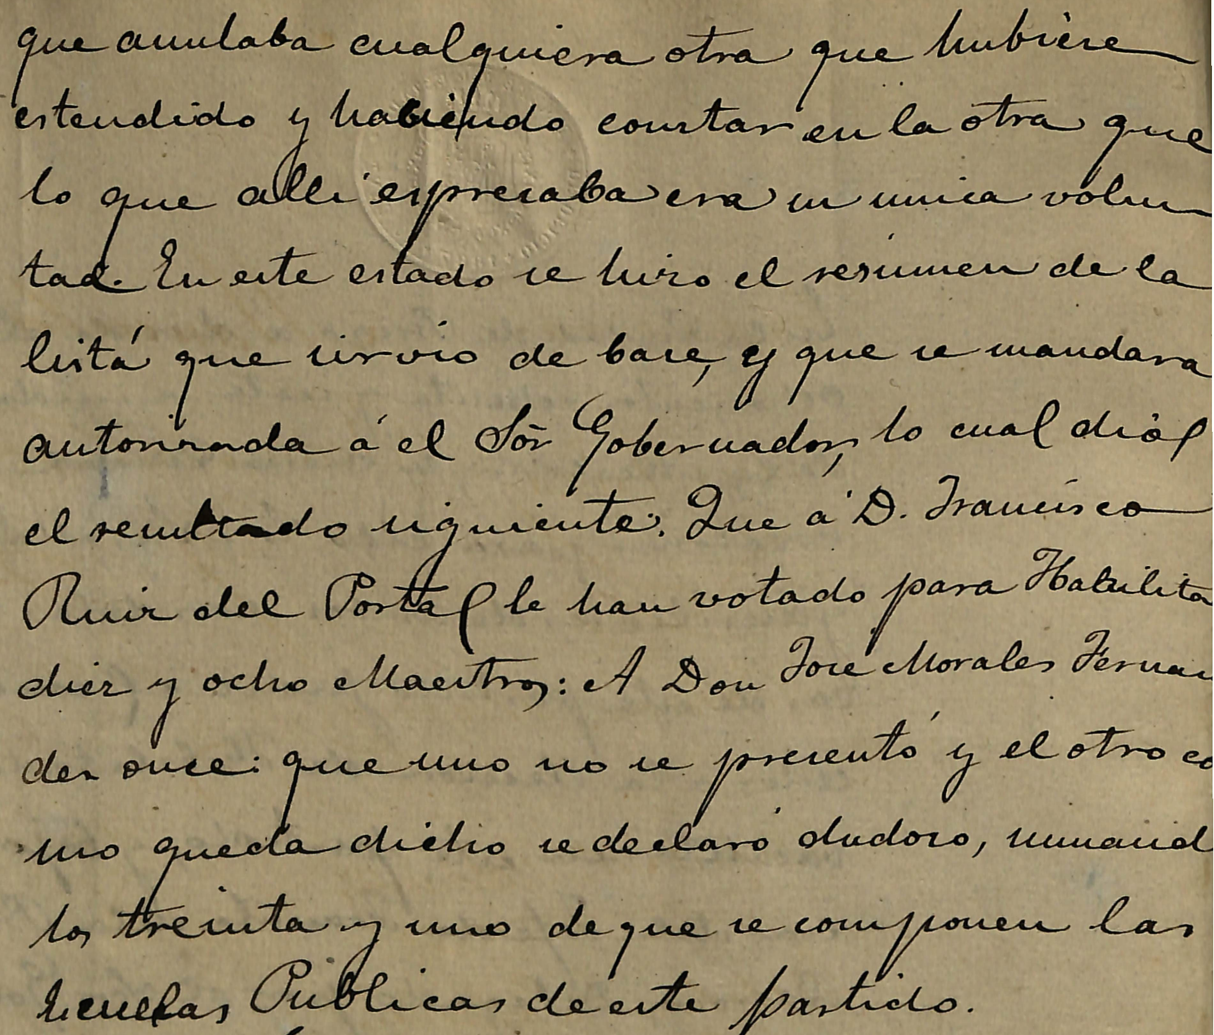 que anulaba cualquiera otra que hubiese
estendido y haciendo constar en la otra que
lo que alli espresaba era su unica volun
tad. En este estado se hizo el resúmen de la
listá que sirvio de base, y que se mandara
autorizada á el Sor Gobernador, lo cual dió
el resultado siguiente. Que á D. Francisco
Ruiz del Portal le han votado para Habilita
diez y ocho Maestros: A Don José Morales Fernan
dez once: que uno no se presentó y el otro co
mo queda dicho se declaró dudoso, sumand
los treinta y uno de que se componen las
Escuelas Públicas de este partido.